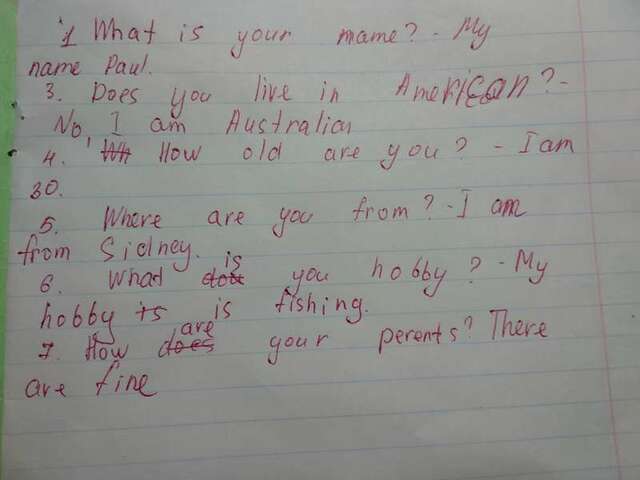 1 What is your mame? - My
name Paul.
3. Does you live in American? -
No, I am Australian
4. Wh How old are you? - I am
30.
5. Where are you from? - I am
from Sidney.
6. What is you hobby? - My
hobby is is fishing.
7. How does are your perents? There
are fine